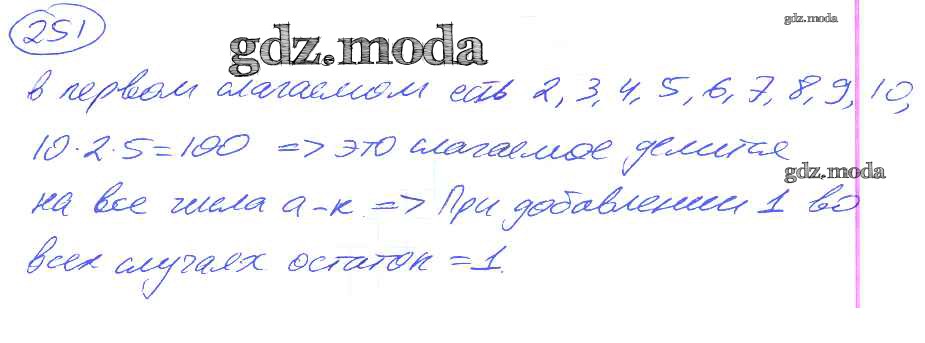 251
gdz.moda
gdz.moda
в первом слагаемом есть 2, 3, 4, 5, 6, 7, 8, 9, 10,
10·2·5=100 => это слагаемое делится
gdz.moda
на все числа а-к => При добавлении 1 во
всех случаях остаток =1.